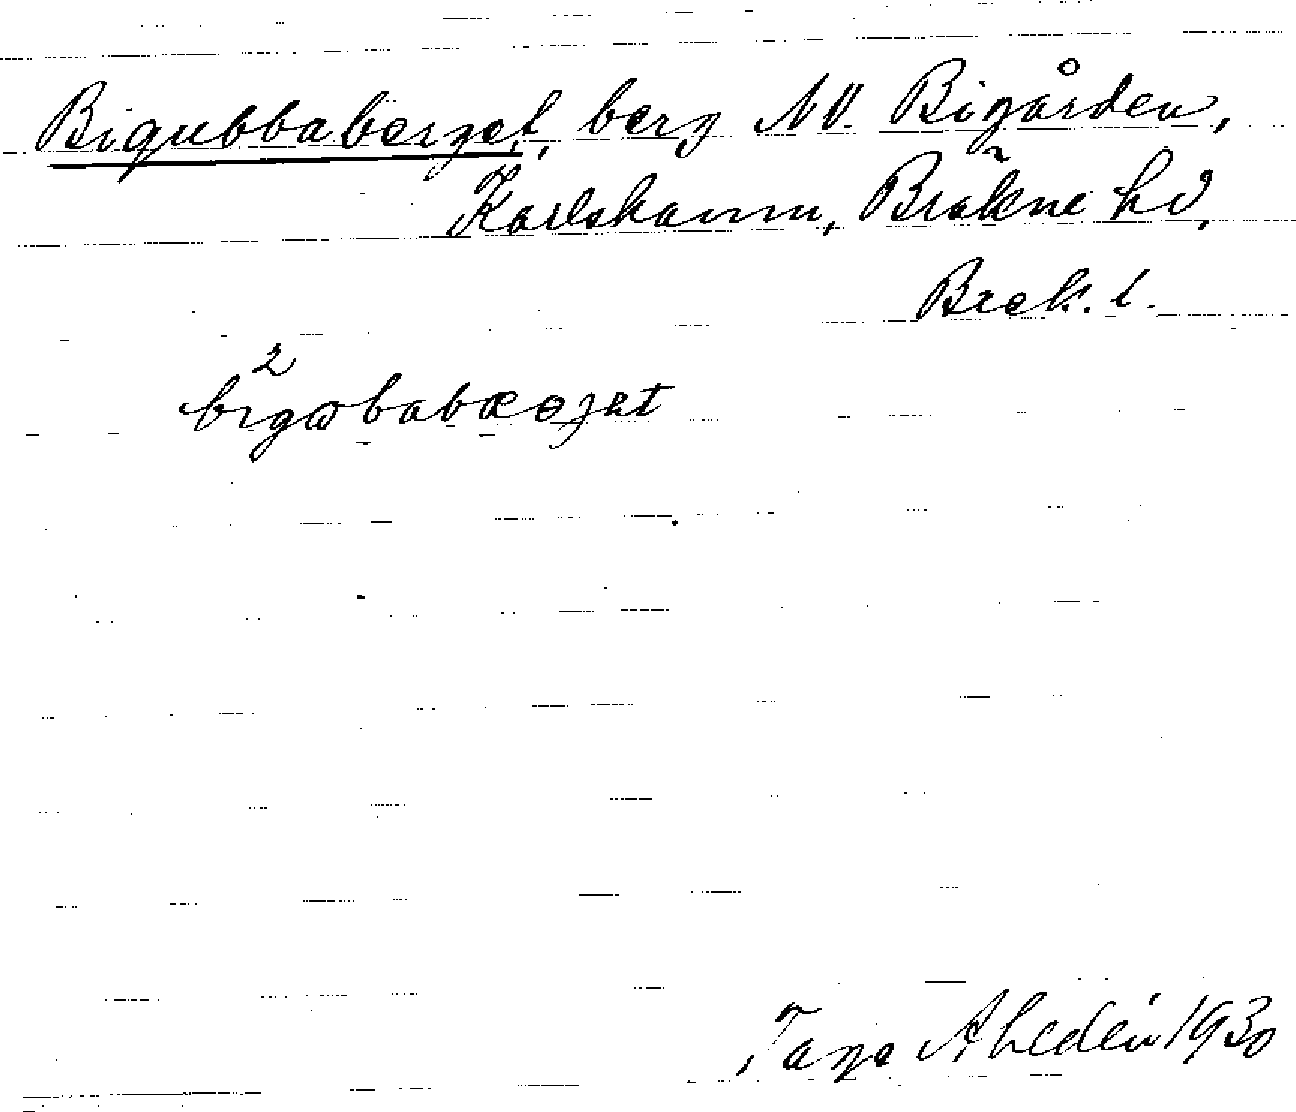 Bigubbaberget, berg NV. Bigården,
Karlshamn, Bräkne hd,
Blek. l.
2
bigωbabæɵjət
Tage Ahldén 1930